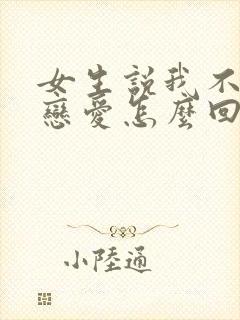 女生說我不
戀愛怎麼回
小陸通